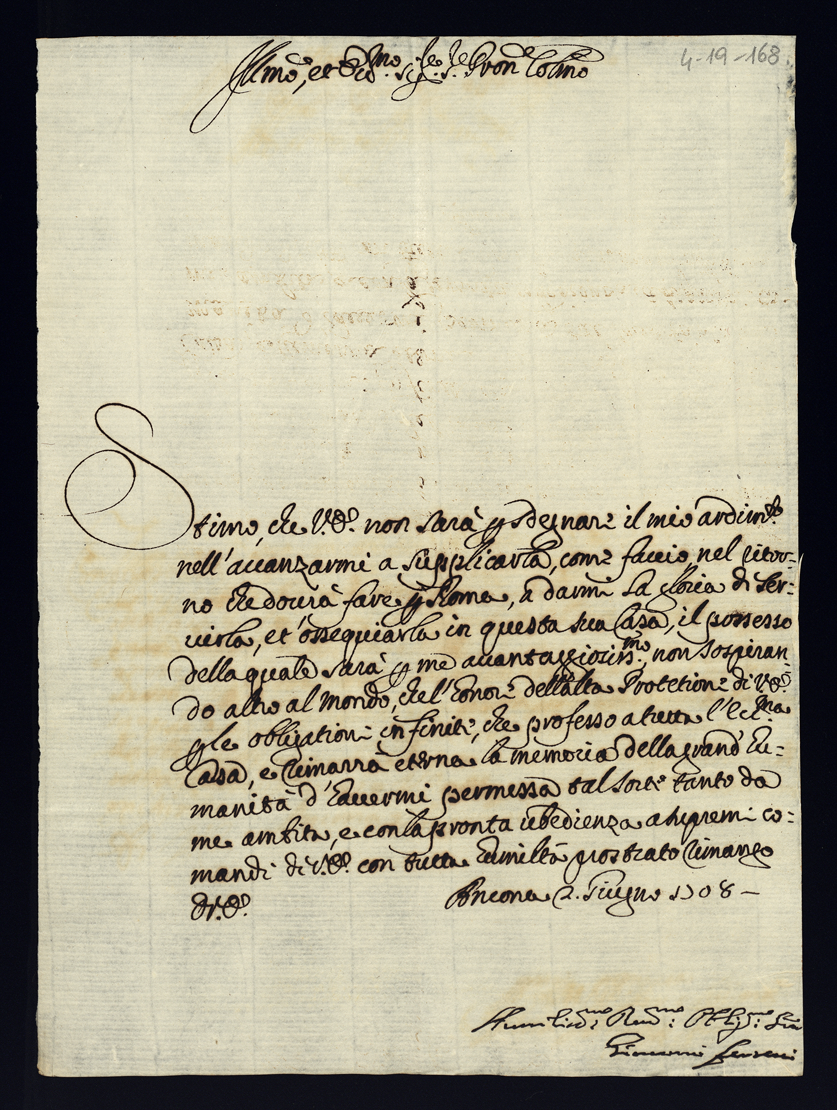 4-19-168
Illmo, et Eccmo Sigre Sre Pron Colmo
Stimo, che V.E. non sarà p sdegnare il mio ardimto
nell'avanzarmi a supplicarla, come faccio nel ritor-
no che dovrà fare p Roma, a darmi la gloria di ser-
virla, et ossequiarla in questa sua Casa, il possesso
della quale sarà p me avantaggiosissmo, non sospiran-
do altro al mondo, che l'honore dell'alta Protetione di V.E.
p le obligationi infinite, che professo a tutta l'Eccma
Casa, e rimarrà eterna la memoria della grand'hu-
manità d'havermi permessa tal sorte tanto da
me ambita, e con la pronta ubedienza a supremi co-
mandi di V.E. con tutta humiltà prostrato rimango
Di V.E.
Ancona 2. Giugno 1708 -
Humilissmo Devmo Obligmo
Giovanni